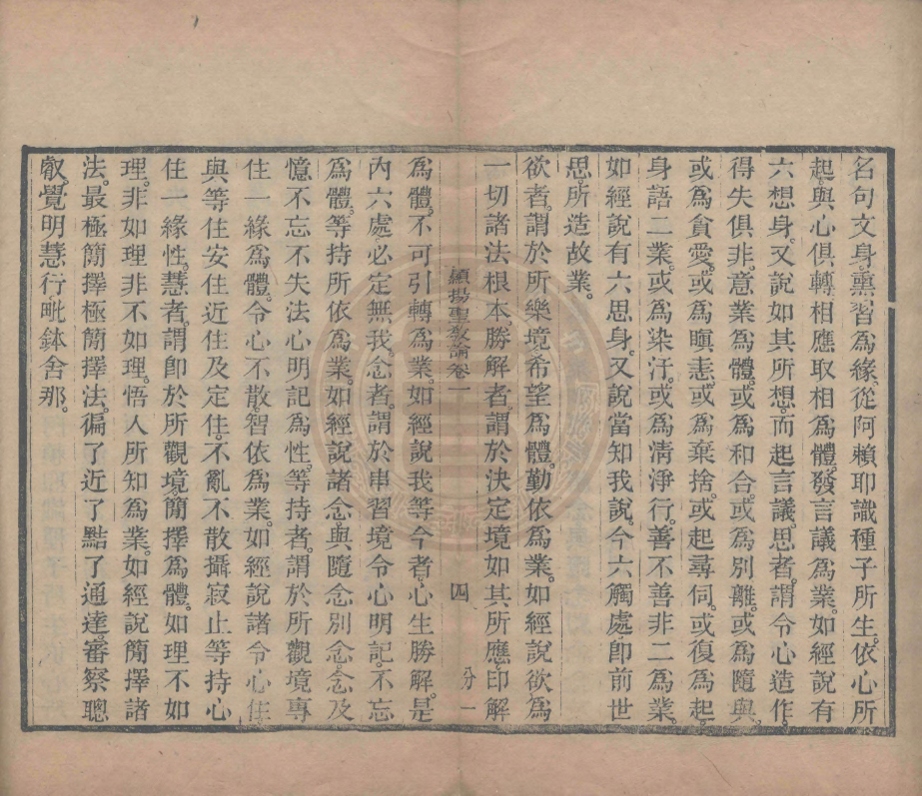 名句文身。熏習爲緣。從阿賴耶識種子所生。依心所
起。與心俱轉相應取相爲體。發言議爲業。如經說有
六想身。又說如其所想。而起言議。思者。謂令心造作。
得失俱非。意業爲體。或爲和合。或爲別離。或爲隨與。
或爲貪愛。或爲瞋恚。或爲棄捨。或起尋伺。或復爲起。
身語二業。或爲染汙。或爲淸淨行。善不善非二爲業。
如經說有六思身。又說當知我說。今六觸處。卽前世
思所造故業。
欲者。謂於所樂境希望爲體。勤依爲業。如經說欲爲
一切諸法根本。勝解者。謂於決定境如其所應。印解
顯揚聖敎論卷一 四 分一
爲體。不可引轉爲業。如經說我等今者。心生勝解。是
內六處必定無我。念者。謂於串習境令心明記。不忘
爲體。等持所依爲業。如經說諸念。與隨念別念。念及
憶不忘不失法心明記爲性。等持者。謂於所觀境專
住一緣爲體。令心不散。智依爲業。如經說諸令心住
與等住安住近住及定住。不亂不散攝寂止等持心
住一緣性。慧者。謂卽於所觀境。簡擇爲體。如理不如
理。非如理非不如理。悟人所知爲業。如經說簡擇諸
法。最極簡擇極簡擇法。徧了近了黠了通達。審察聰
叡覺明慧行毗鉢舍那。